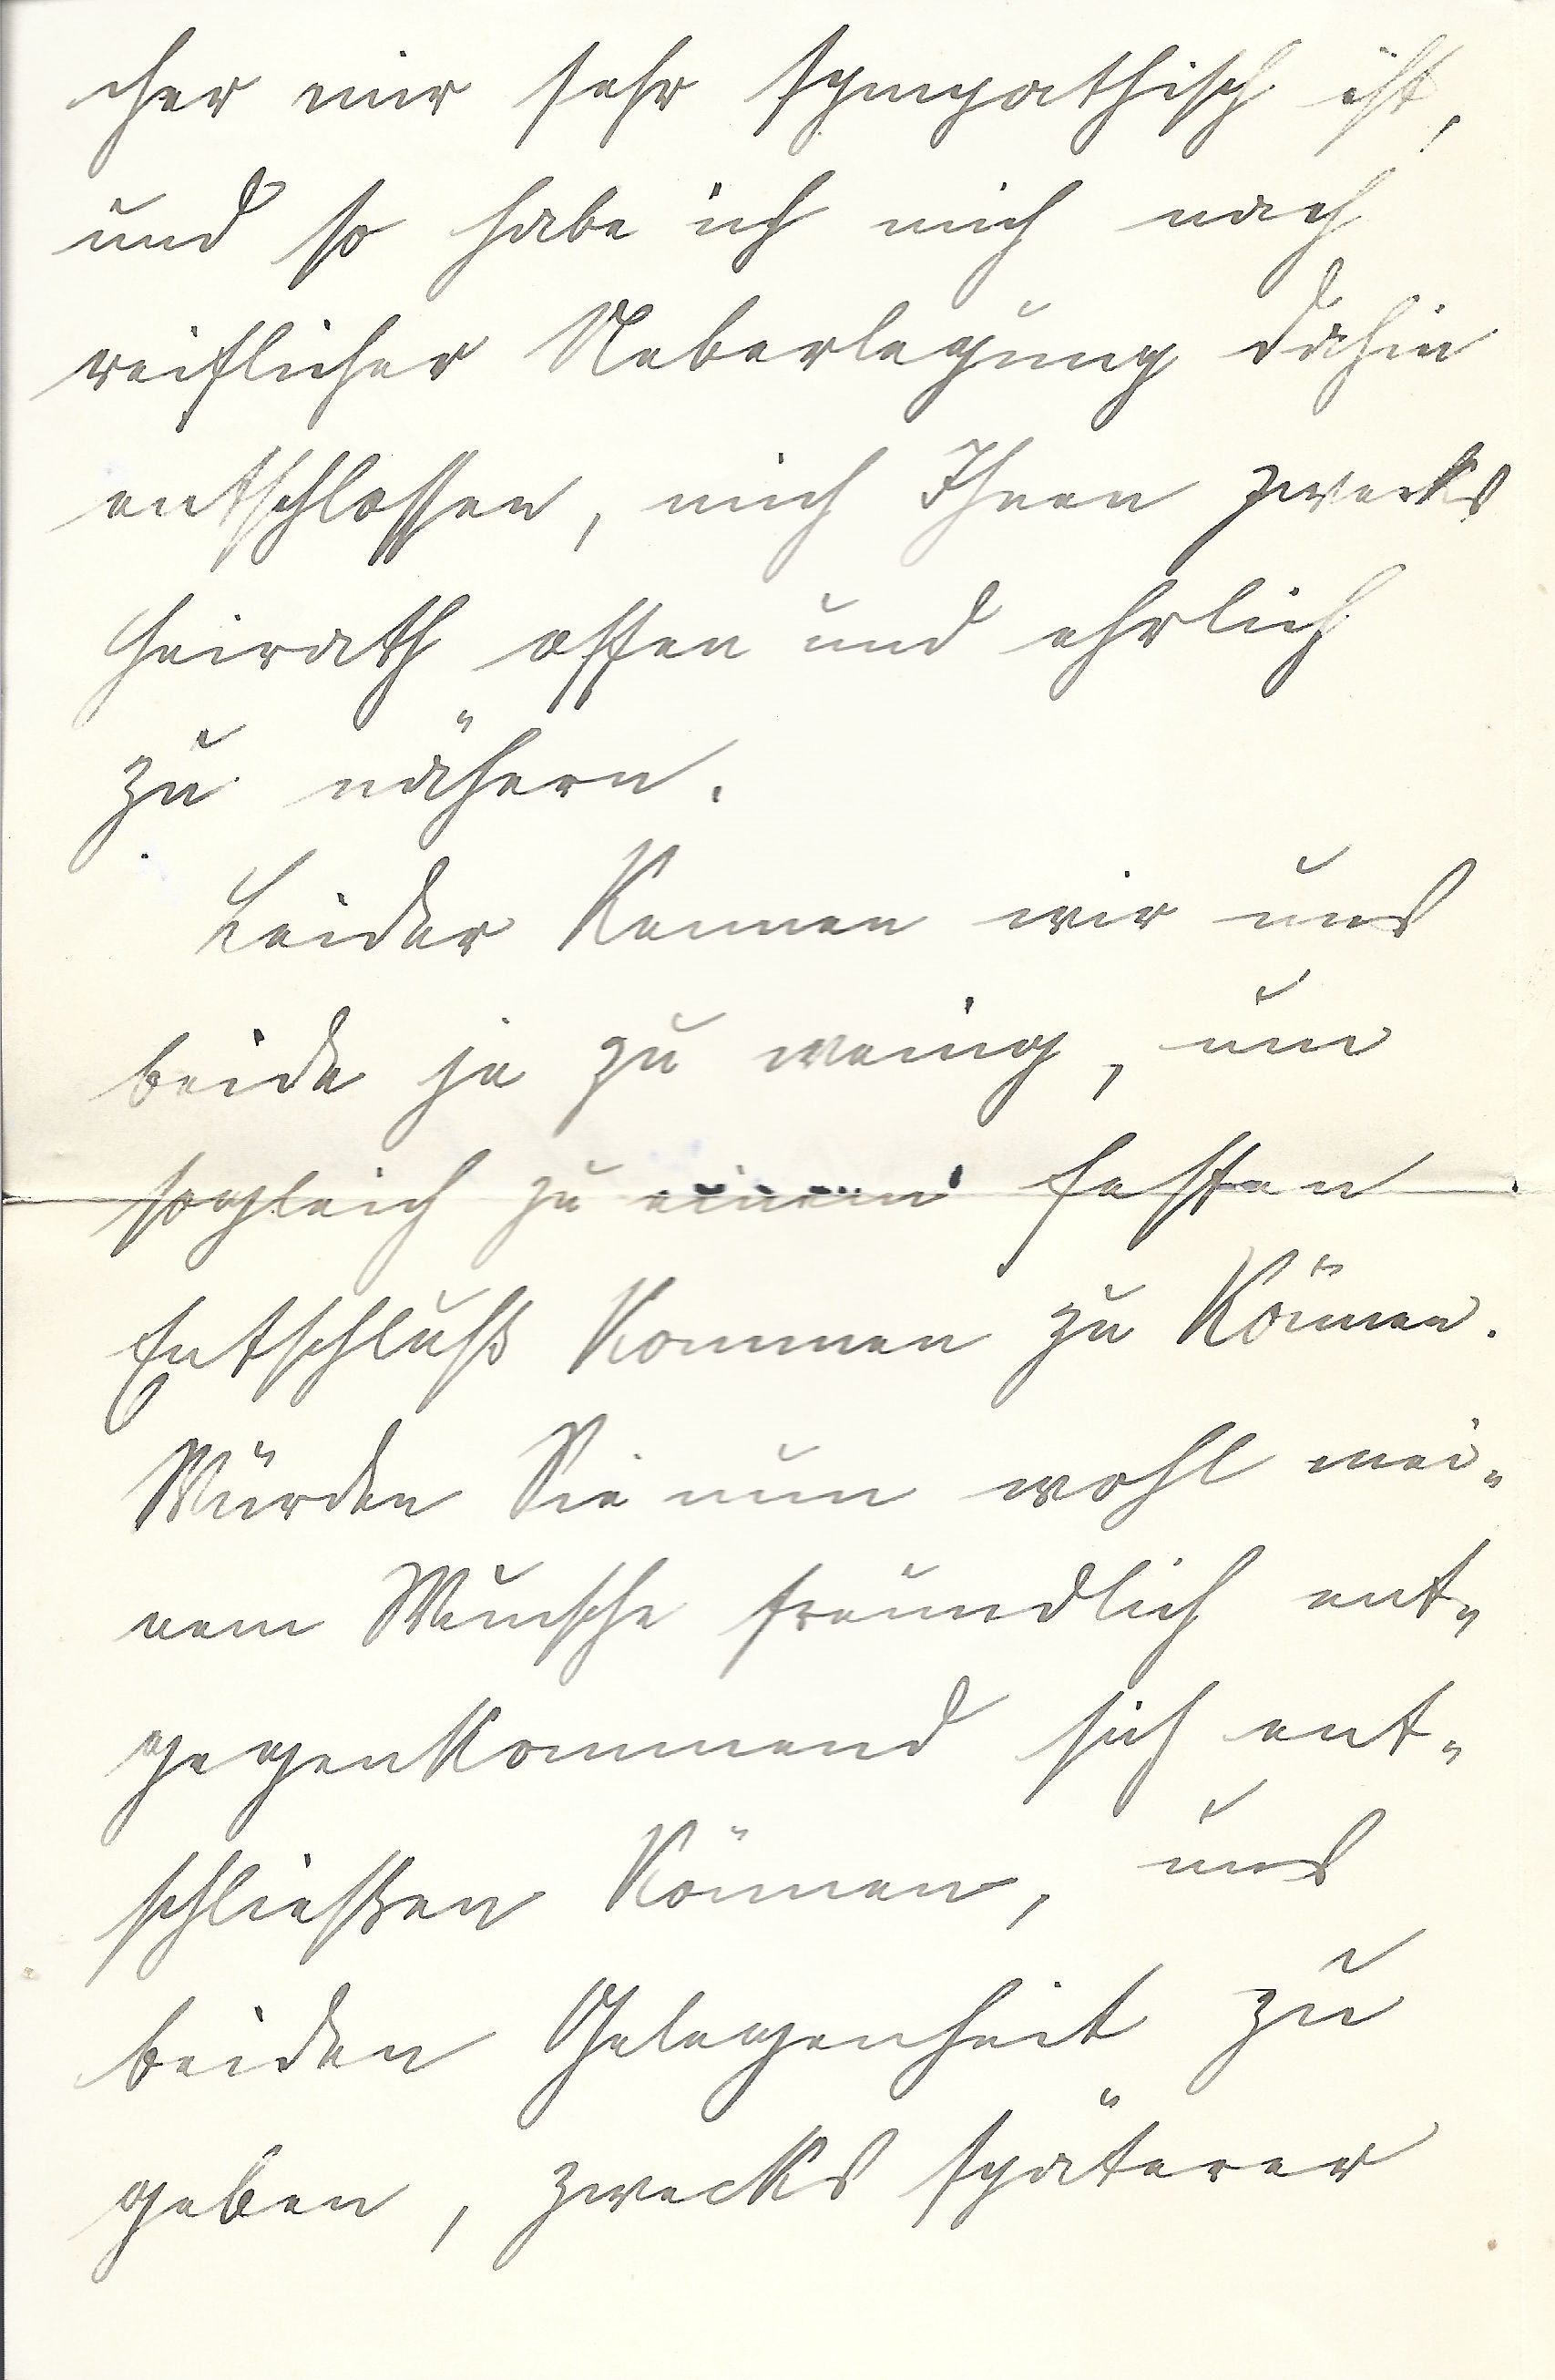 cher mir sehr sympathisch ist,
und so habe ich mich nach
reiflicher Ueberlegung dahin
entschlossen, mich Ihnen zwecks
Heirath offen und ehrlich
zu nähern.
Leider kennen wir uns
beide ja zu wenig, um
sogleich zu einem festen
Entschluß kommen zu können.
Würden Sie nun wohl mei-
nem Wunsche freundlich ent-
gegenkommend sich ent-
schließen können, uns
beiden Gelegenheit zu
geben, zwecks späterer